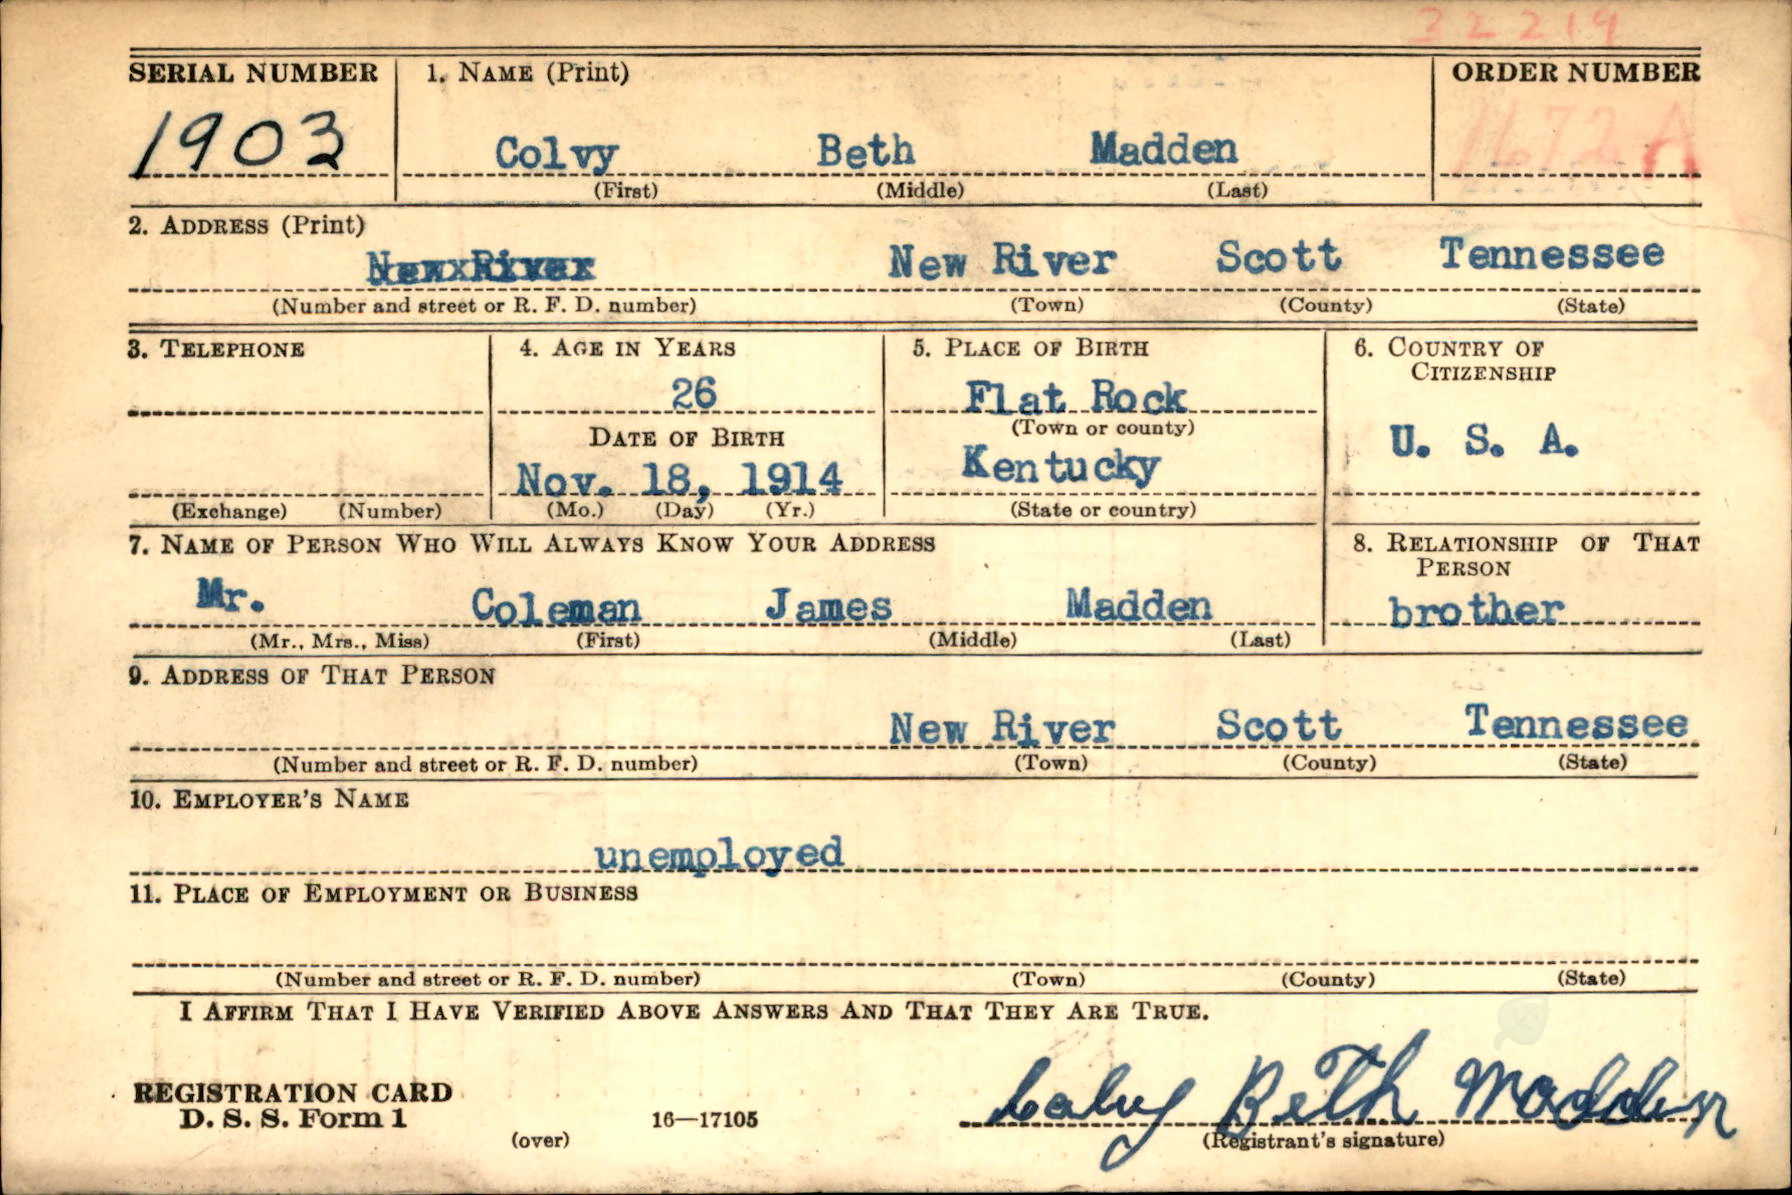 32219
SERIAL NUMBER 1. NAME (Print) ORDER NUMBER
1903 Colvy Beth Madden 1672 A
(First) (Middle) (Last)
2. ADDRESS (Print)
New River Scott Tennessee
(Number and street or R. F. D. number) (Town) (County) (State)
3. TELEPHONE 4. AGE IN YEARS 5. PLACE OF BIRTH 6. COUNTRY OF CITIZENSHIP
26 Flat Rock
(Town or county)
DATE OF BIRTH U. S. A.
Nov. 18, 1914 Kentucky
(Exchange) (Number) (Mo.) (Day) (Yr.) (State or country)
7. NAME OF PERSON WHO WILL ALWAYS KNOW YOUR ADDRESS 8. RELATIONSHIP OF THAT PERSON
Mr. Coleman James Madden brother
(Mr., Mrs., Miss) (First) (Middle) (Last)
9. ADDRESS OF THAT PERSON
New River Scott Tennessee
(Number and street or R. F. D. number) (Town) (County) (State)
10. EMPLOYER'S NAME
unemployed
11. PLACE OF EMPLOYMENT OR BUSINESS
(Number and street or R. F. D. number) (Town) (County) (State)
I AFFIRM THAT I HAVE VERIFIED ABOVE ANSWERS AND THAT THEY ARE TRUE.
REGISTRATION CARD
D. S. S. Form 1 16—17105 Beth Madden
(over) (Registrant's signature)